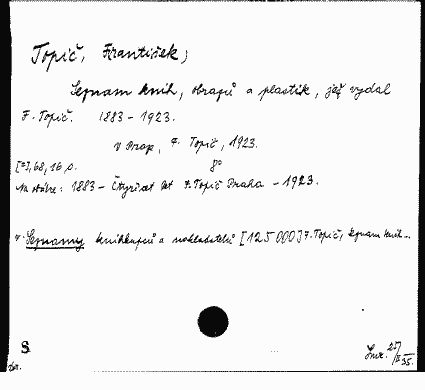 Topič, František,
Seznam knih, obrazů a plastik, jež vydal
F. Topič. 1883-1923.
V Praze, F. Topič, 1923.
[2], 68, 16 s. 8°
Na obálce: 1883 – Čtyřicet let F. Topič Praha – 1923.
v. Seznamy knihkupců a nakladatelů [125 000] F. Topič, Seznam knih...
S